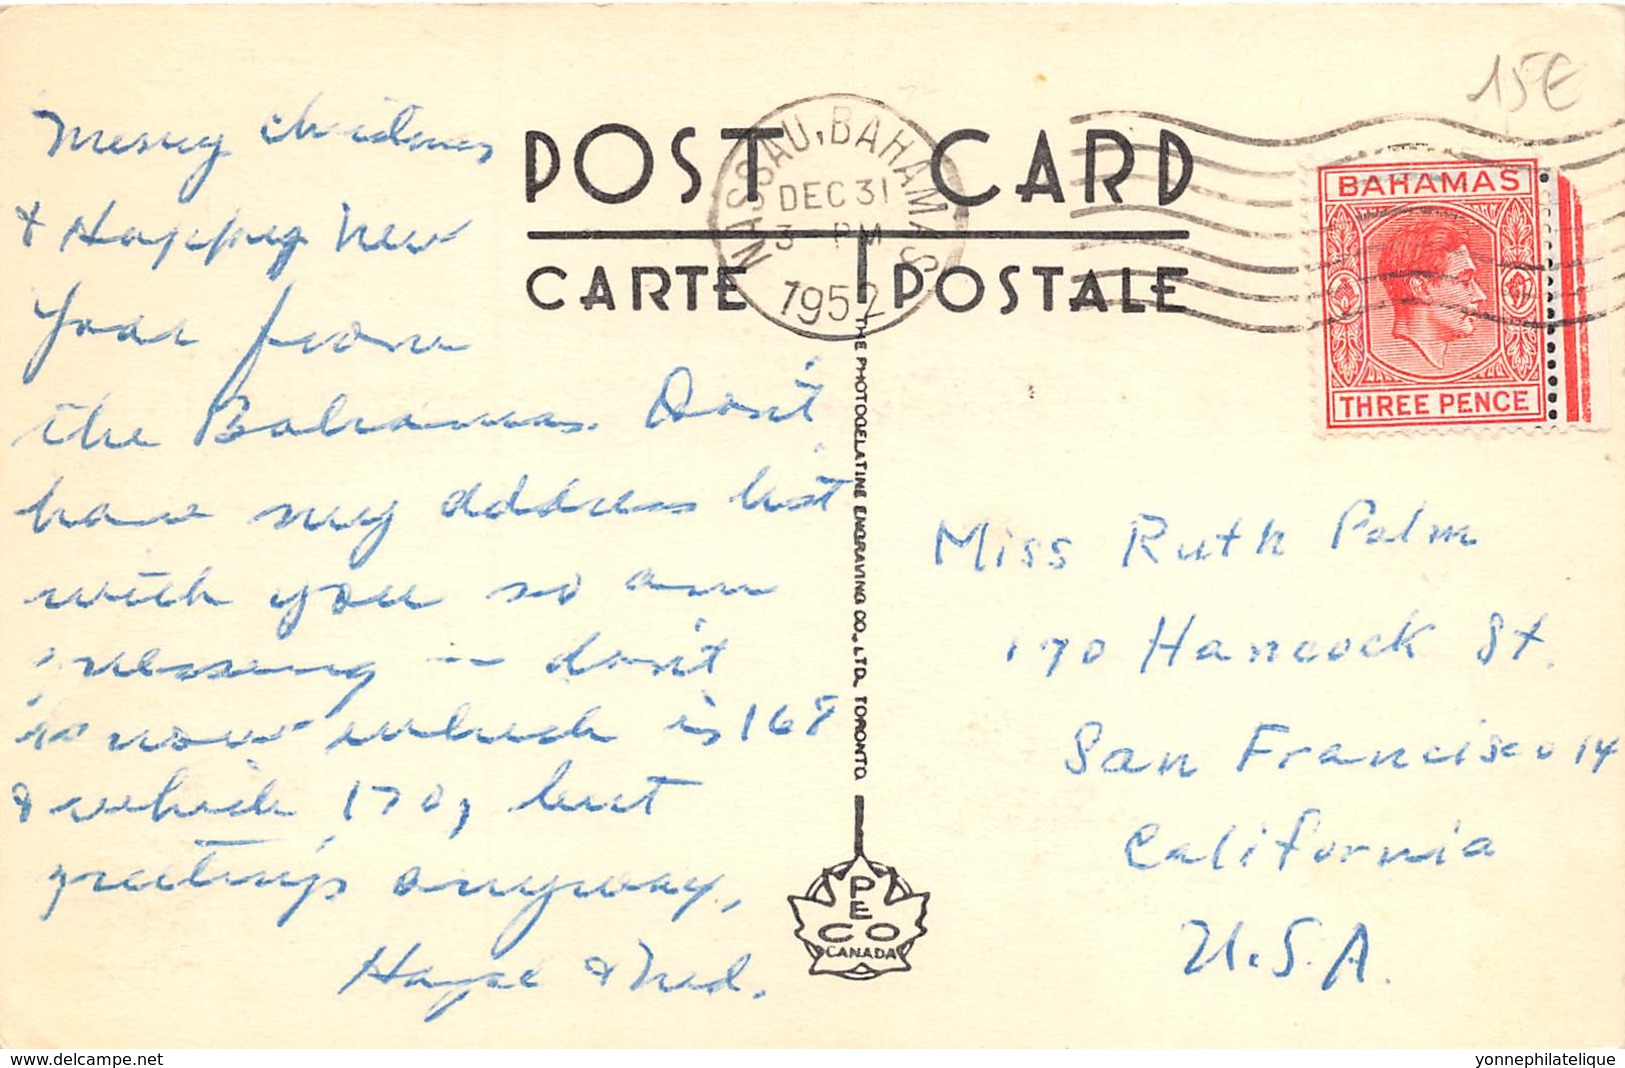 15€
POST CARD
CARTE POSTALE
NASSAU, BAHAMAS
DEC 31
3 PM
1952
BAHAMAS
THREE PENCE
Merry Christmas
& Happy New
Year from
the Bahamas. Don't
have my address list
with you so am
guessing — don't
know which is 168
& which 170, but
greetings anyway,
Hazel & Ned.
THE PHOTOGELATINE ENGRAVING CO., LTD. TORONTO
PECO
CANADA
Miss Ruth Palm
170 Hancock St.
San Francisco 14
California
U.S.A.
www.delcampe.net
yonnephilatelique